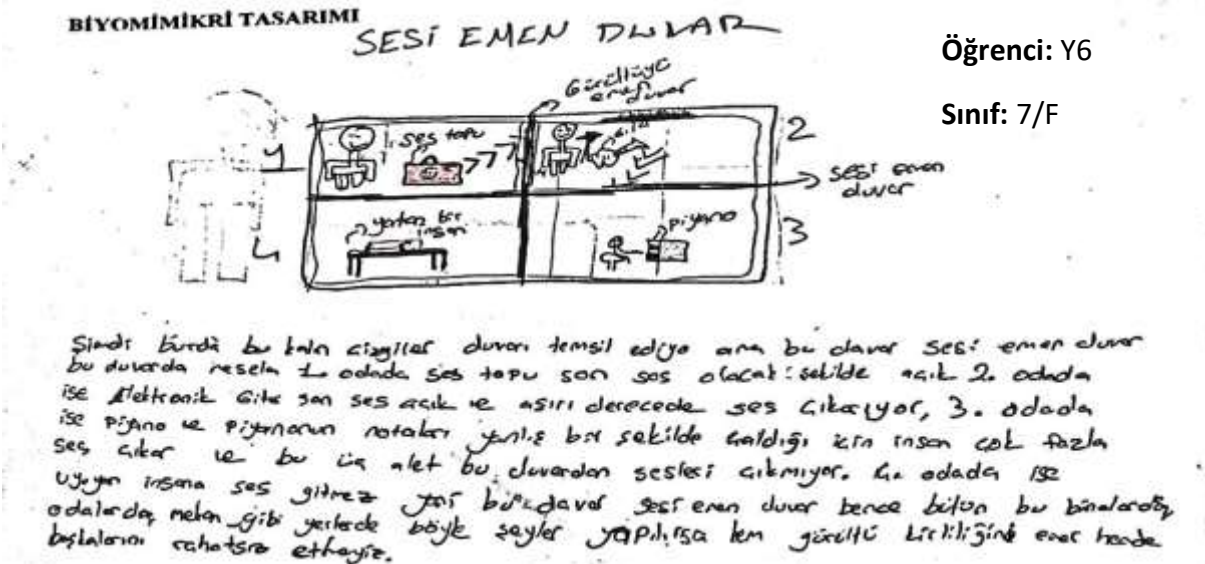 BİYOMİMİKRİ TASARIMI
SESİ EMEN DUVAR
Öğrenci: Y6
Sınıf: 7/F
Gürültüyü
emen duvar
ses topu
1
2
sesi emen
duvar
yatan bir
insan
piyano
3
4
Şimdi burda bu kalın çizgiler duvarı temsil ediyo ama bu duvar sesi emen duvar
bu duvarda mesela 1. odada ses topu son ses olacak şekilde açık 2. odada
ise Elektronik Gitar son ses açık ve aşırı derecede ses çıkarıyor, 3. odada
ise piyano ve piyanonun notaları yanlış bir şekilde çaldığı için insan çok fazla
ses çıkar ve bu üç alet bu duvardan sesleri çıkmıyor. 4. odada ise
uyuyan insana ses gitmez yani bu duvar sesi emen duvar bence bütün bu binalarda,
odalarda, mekan gibi yerlerde böyle şeyler yapılırsa hem gürültü kirliliğini emer hemde
başkalarını rahatsız etmeyiz.